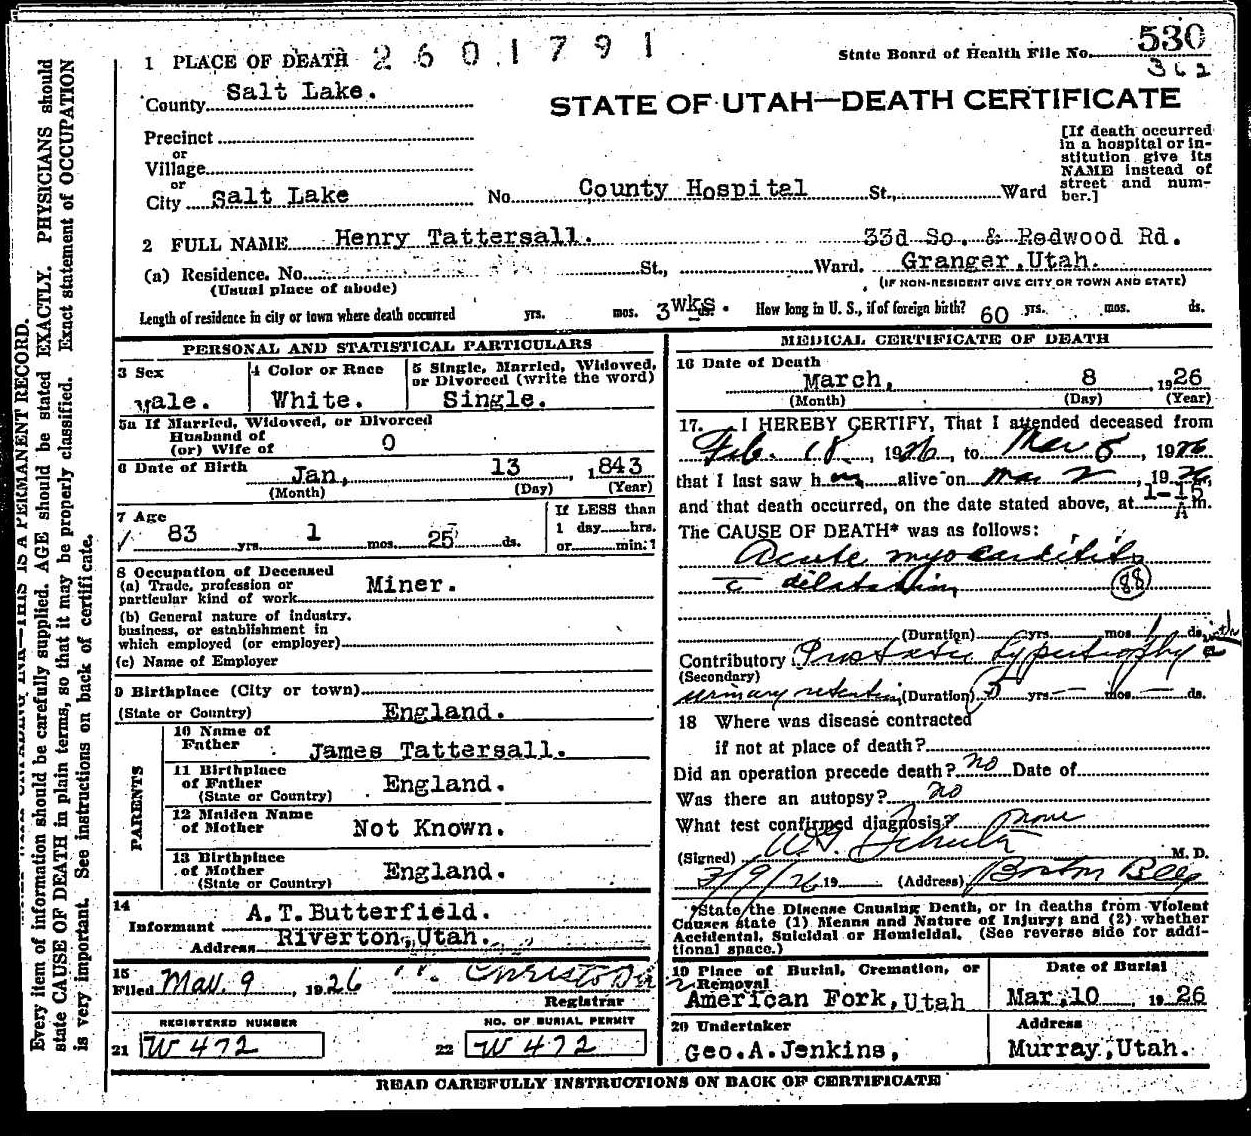 State Board of Health File No. 530
362
1 PLACE OF DEATH 2601791
County Salt Lake.
STATE OF UTAH—DEATH CERTIFICATE
Precinct
or
Village
or
City Salt Lake No. County Hospital St., Ward
[If death occurred
in a hospital or in-
stitution give its
NAME instead of
street and num-
ber.]
2 FULL NAME Henry Tattersall. 33d So. & Redwood Rd.
(a) Residence. No. St., Ward. Granger, Utah.
(Usual place of abode) (IF NON-RESIDENT GIVE CITY OR TOWN AND STATE)
Length of residence in city or town where death occurred yrs. mos. 3 wks. ds. How long in U. S., if of foreign birth? 60 yrs. mos. ds.
PERSONAL AND STATISTICAL PARTICULARS
3 Sex
Male.
4 Color or Race
White.
5 Single, Married, Widowed,
or Divorced (write the word)
Single.
5a If Married, Widowed, or Divorced
Husband of
(or) Wife of 0
6 Date of Birth
Jan, 13, 1843
(Month) (Day) (Year)
7 Age
83 yrs. 1 mos. 25 ds.
If LESS than
1 day hrs.
or min.
8 Occupation of Deceased
(a) Trade, profession or
particular kind of work Miner.
(b) General nature of industry,
business, or establishment in
which employed (or employer)
(c) Name of Employer
9 Birthplace (City or town)
(State or Country) England.
PARENTS
10 Name of
Father James Tattersall.
11 Birthplace
of Father England.
(State or Country)
12 Maiden Name
of Mother Not Known.
13 Birthplace
of Mother England.
(State or Country)
14
Informant A.T.Butterfield.
Address Riverton, Utah.
15
Filed Mar. 9, 1926
Registrar
REGISTERED NUMBER
21 W 472
NO. OF BURIAL PERMIT
22 W 472
MEDICAL CERTIFICATE OF DEATH
16 Date of Death
March, 8 1926
(Month) (Day) (Year)
17. I HEREBY CERTIFY, That I attended deceased from
Feb. 18, 1926, to Mar 8, 1926
that I last saw him alive on Mar 2, 1926
and that death occurred, on the date stated above, at 1-15 A m.
The CAUSE OF DEATH* was as follows:
Acute myocarditis
c dilatation (88)
(Duration) yrs. mos. 1 ds.
Contributory Prostatic hypertrophy with
(Secondary)
urinary retention (Duration) 5 yrs — mos — ds.
18 Where was disease contracted
if not at place of death?
Did an operation precede death? no Date of
Was there an autopsy? no
What test confirmed diagnosis? none
(Signed) M. D.
3/9/26 19 (Address) Boston Bldg
*State the Disease Causing Death, or in deaths from Violent
Causes state (1) Means and Nature of Injury; and (2) whether
Accidental, Suicidal or Homicidal. (See reverse side for addi-
tional space.)
19 Place of Burial, Cremation, or
Removal
American Fork, Utah
Date of Burial
Mar, 10, 1926
20 Undertaker
Geo.A.Jenkins,
Address
Murray, Utah.
READ CAREFULLY INSTRUCTIONS ON BACK OF CERTIFICATE
THIS IS A PERMANENT RECORD.
Every item of information should be carefully supplied. AGE should be stated EXACTLY. PHYSICIANS should
state CAUSE OF DEATH in plain terms, so that it may be properly classified. Exact statement of OCCUPATION
is very important. See instructions on back of certificate.